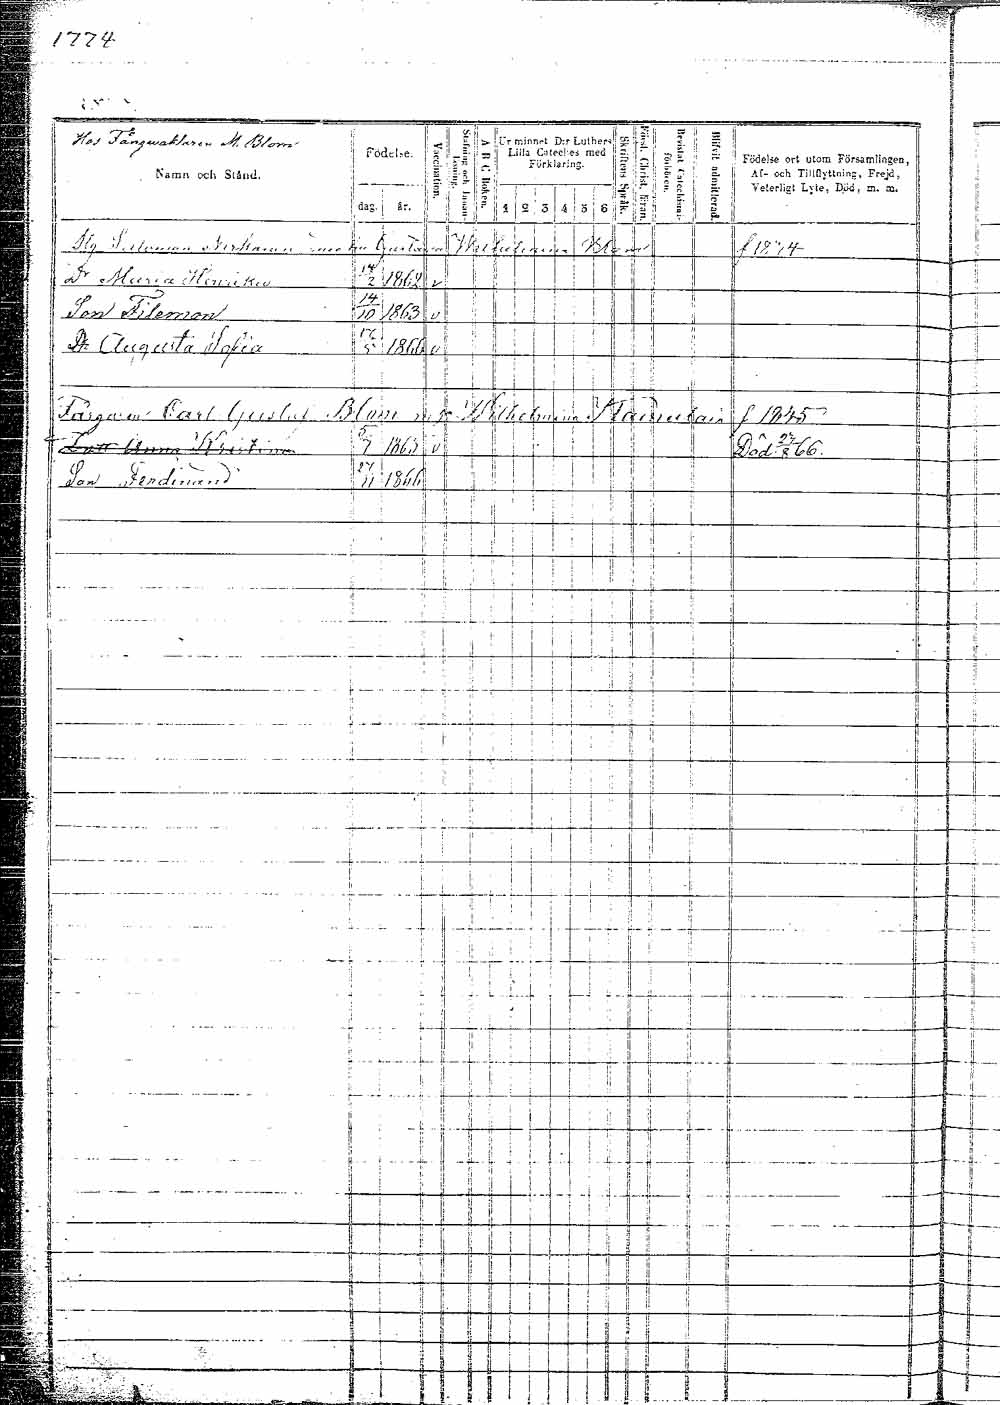 1774
Hos Fångvaktaren M. Blom
Namn och Stånd.
Födelse.
dag. år.
Vaccination.
Stafning och Innan-
Läsning.
A B C Boken.
Ur minnet D:r Luthers
Lilla Cateches med
Förklaring.
1 2 3 4 5 6
Skriftens Språk.
Först. Christ. läran.
Bevistat Catechismi-
förhören.
Blifvit admitterad.
Födelse ort utom Församlingen,
Af- och Tillflyttning, Frejd,
Veterligt Lyte, Död, m. m.
Gustava Wilhelmina Blom f 1874
Dr Maria Henrika 14/2 1862 v
Son Filemon 14/10 1863 v
Dr Augusta Sofia 1866 v
Carl Gustaf Blom Wilhelmina f 1845
Dott Anna Kristina 5/7 1863 v Död 66.
Son Ferdinand 27/11 1866